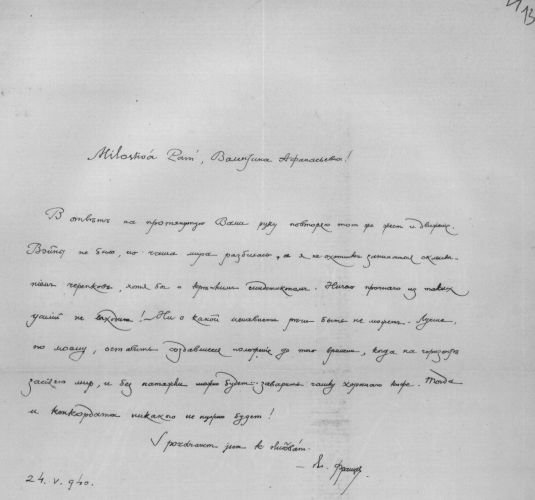 13
Milostivá Paní, Валентина Афанасьевна!
В отвѣтъ на протянутую Вами руку повторяю тот же жест и движенье.
Войны не было, но чаша мира разбилась, а я не охотник заниматься склеива-
ніемъ черепковъ, хотя бы и синдетиконом. Ничего прочнаго из таких
усилій не выходит! Ни о какой ненависти рѣчи быть не может. Лучше,
по моему, оставить создавшееся положеніе до того времени, когда на горизонтѣ
засіяет мир, и без натяжки можно будет заварить чашку хорошаго кофе. Тогда
и конкордата никакого не нужно будет!
S poručením jen k službám
24. V. 940.